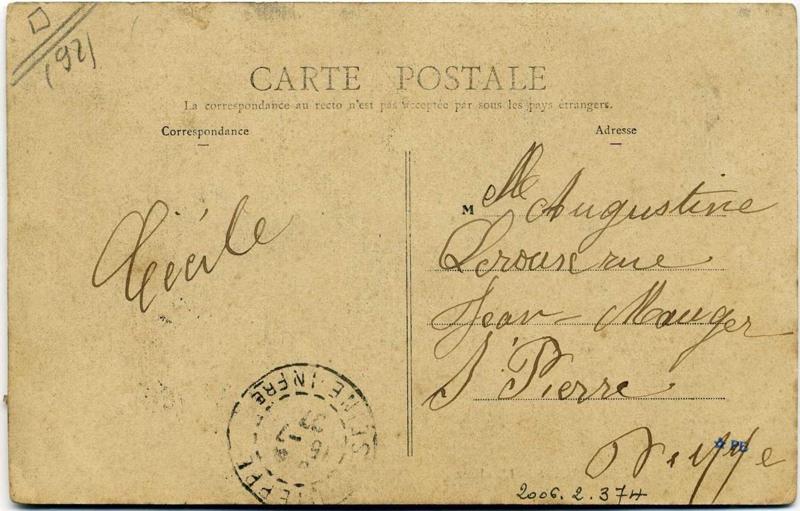 (92)
CARTE POSTALE
La correspondance au recto n'est pas acceptée par sous les pays étrangers.
Correspondance
Adresse
Cécile
M Mlle Augustine
Leroux rue
Jean-Mauger
St Pierre
Dieppe
PE
DIEPPE
SEINE-INFRE
2006.2.374